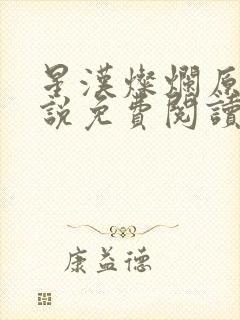 星漢燦爛原
說免費閱讀
康益德